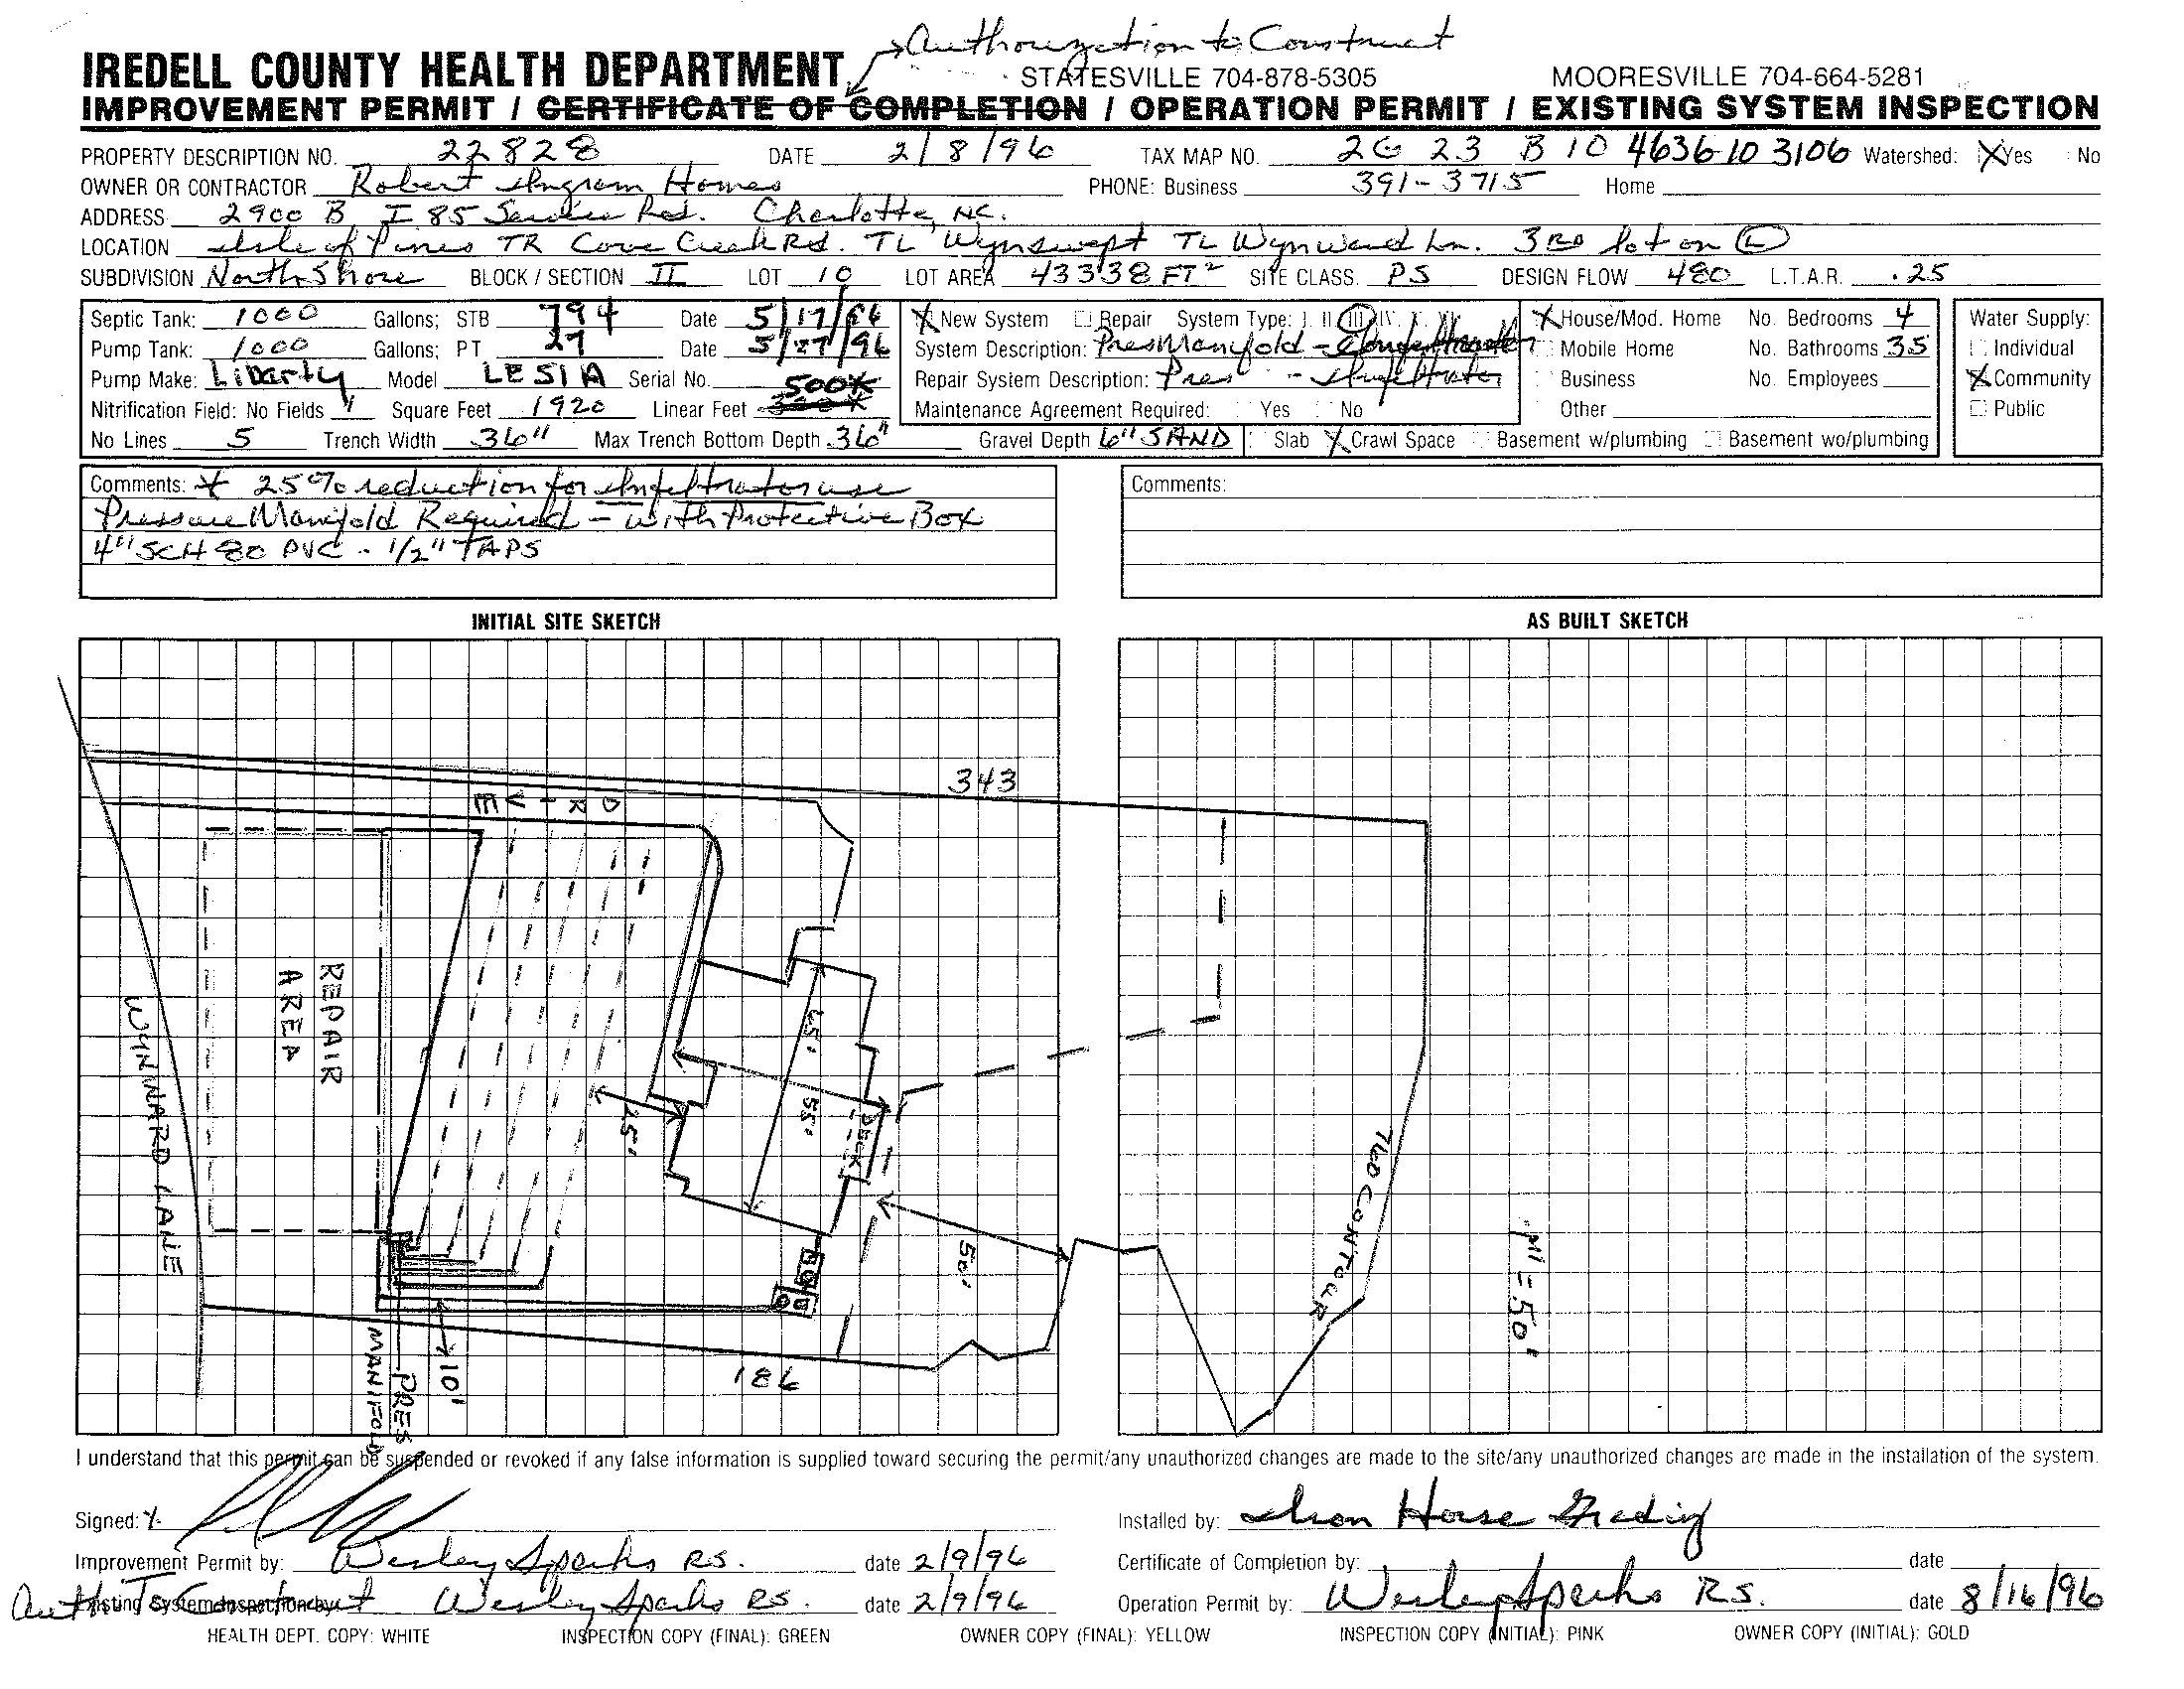 Authorization to Construct
IREDELL COUNTY HEALTH DEPARTMENT STATESVILLE 704-878-5305 MOORESVILLE 704-664-5281
IMPROVEMENT PERMIT / CERTIFICATE OF COMPLETION / OPERATION PERMIT / EXISTING SYSTEM INSPECTION
PROPERTY DESCRIPTION NO. 22828 DATE 2/8/96 TAX MAP NO. 2G 23 B 10 4636 10 3106 Watershed: X Yes No
OWNER OR CONTRACTOR Robert Ingram Homes PHONE: Business 391-3715 Home
ADDRESS 2900 B I 85 Service Rd. Charlotte, NC.
LOCATION Isle of Pines TR Cove Creek Rd. TL Wynswept TL Wynward Ln. 3RD lot on L
SUBDIVISION North Shore BLOCK / SECTION II LOT 10 LOT AREA 43338 FT² SITE CLASS. PS DESIGN FLOW 480 L.T.A.R. .25
Septic Tank: 1000 Gallons; STB 794 Date 5/17/96 X New System Repair System Type: I II III IV V VI X House/Mod. Home No. Bedrooms 4 Water Supply:
Pump Tank: 1000 Gallons; PT 27 Date 5/27/96 System Description: Pres Manifold - Mobile Home No. Bathrooms 3.5 Individual
Pump Make: Liberty Model LE51A Serial No. 500* Repair System Description: Pres " - Infiltrator Business No. Employees X Community
Nitrification Field: No Fields 1 Square Feet 1920 Linear Feet Maintenance Agreement Required: Yes No Other Public
No Lines 5 Trench Width 36" Max Trench Bottom Depth 36" Gravel Depth 6" SAND Slab X Crawl Space Basement w/plumbing Basement wo/plumbing
Comments: * 25% reduction for Infiltrator use
Pressure Manifold Required - with Protective Box
4" SCH 80 PVC - 1/2" TAPS
Comments:
INITIAL SITE SKETCH AS BUILT SKETCH
343
DRIVE
REPAIR
AREA
WYNWARD LANE
65'
55'
DECK
25'
50'
760 CONTOUR
1" = 50'
10'
PRES
MANIFOLD
186
I understand that this permit can be suspended or revoked if any false information is supplied toward securing the permit/any unauthorized changes are made to the site/any unauthorized changes are made in the installation of the system.
Signed: X Installed by: Iron Horse Grading
Improvement Permit by: Wesley Sparks RS. date 2/9/96 Certificate of Completion by: date
Auth To Construct Existing System Inspection by: Wesley Sparks RS. date 2/9/96 Operation Permit by: Wesley Sparks R.S. date 8/16/96
HEALTH DEPT. COPY: WHITE INSPECTION COPY (FINAL): GREEN OWNER COPY (FINAL): YELLOW INSPECTION COPY (INITIAL): PINK OWNER COPY (INITIAL): GOLD